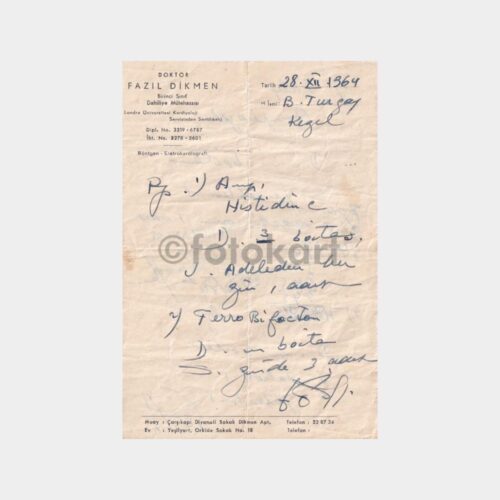 DOKTOR
FAZIL DİKMEN
Birinci Sınıf
Dahiliye Mütehassısı
Londra Üniversitesi Kardiyoloji
Servisinden Sertifikalı
Dipl. No. 3219 - 6787
İht. No. 3278 - 3601
Röntgen - Elektrokardiografi
Tarih 28. XII 1964
İsmi: B. Turgay
Rp. 1) Amp.
Histidine
D. 3 boites
S. Adeleden her
gün 1 adet
2) Ferro Bifacton
D. un boite
S. günde 3 adet
©fotokart
Muay : Çarşıkapı Divanali Sokak Dikmen Apt. Telefon : 22 87 36
Ev : Yeşilyurt, Orkide Sokak No. 18 Telefon :